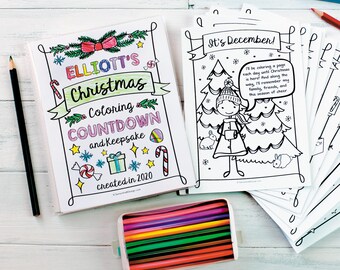 ELLIOTT'S
Christmas
Coloring
COUNTDOWN
and Keepsake
created in 2020
It's December!
I'll be coloring a page
each day until Christmas
is here! And along the
way, I'll remember my
family, friends, and
this season of cheer!